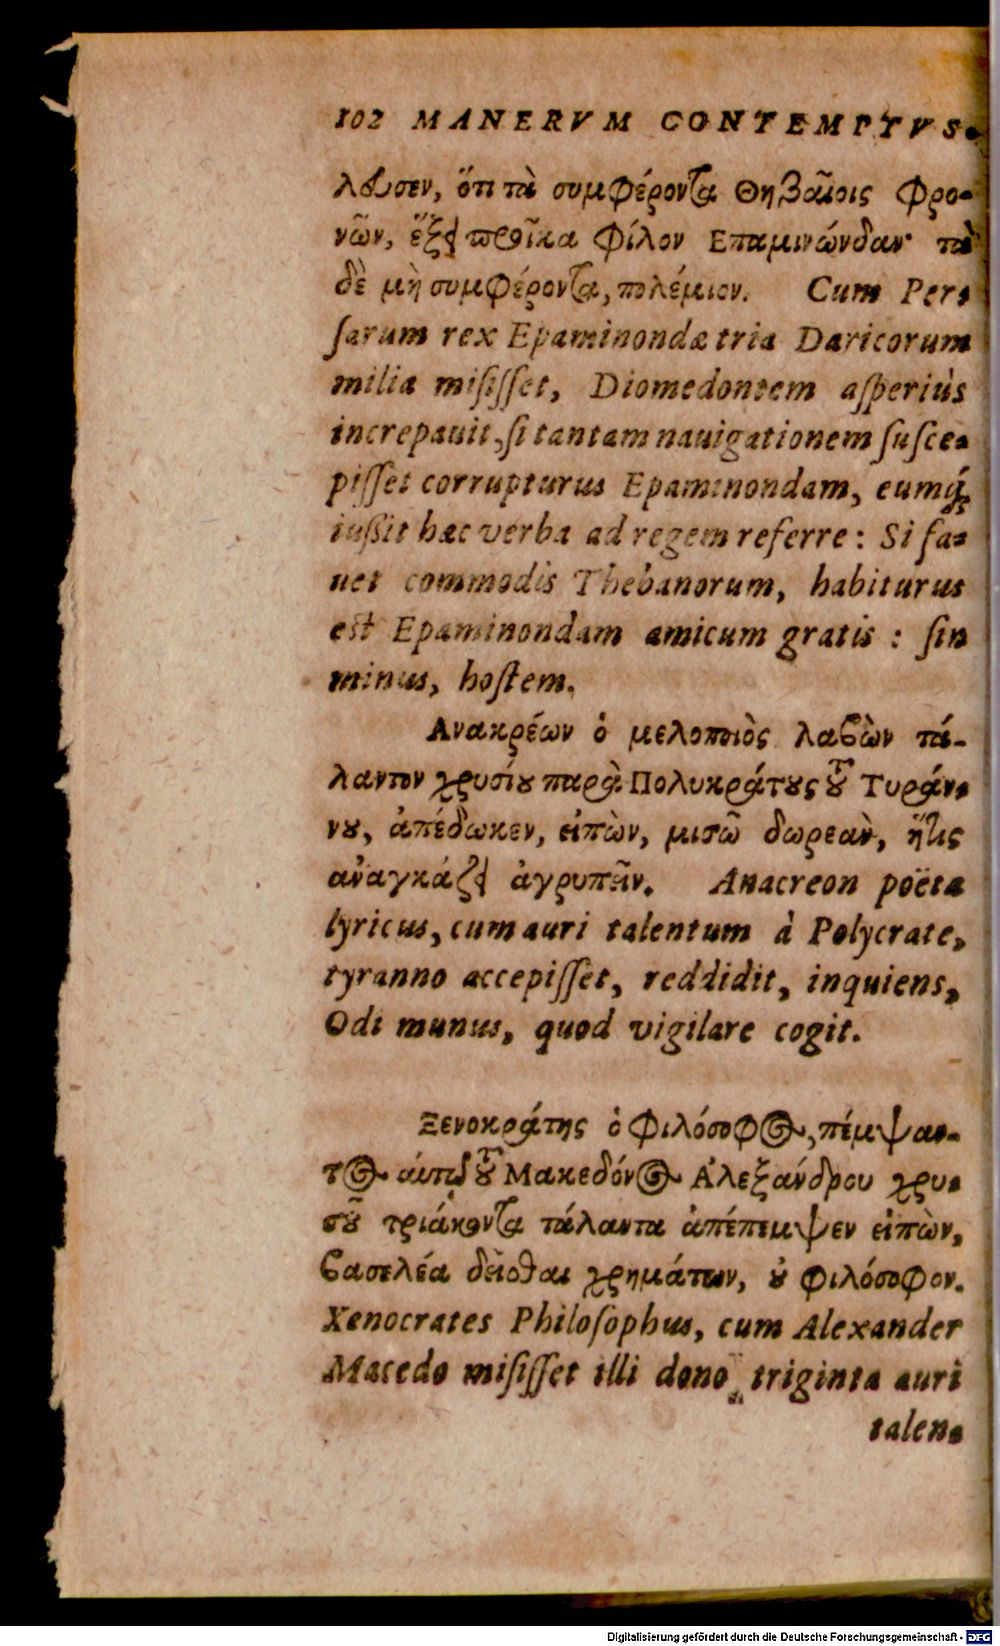 102 MANERVM CONTEMPTVS.
λευσεν, ὅτι τὰ συμφέροντα Θηβαίοις φρο-
νῶν, ἕξει προῖκα φίλον Επαμινώνδαν· τὰ
δὲ μὴ συμφέροντα, πολέμιον. Cum Per-
ſarum rex Epaminondæ tria Daricorum
milia miſiſſet, Diomedontem aſperiùs
increpauit, ſi tantam nauigationem ſuſce-
piſſet corrupturus Epaminondam, eumq́;
iuſsit hæc verba ad regem referre: Si fa-
uet commodis Thebanorum, habiturus
est Epaminondam amicum gratis: ſin
minus, hoſtem.
Ανακρέων ὁ μελοποιὸς λαβὼν τά-
λαντον χρυσίου παρὰ Πολυκράτους τοῦ Τυράν-
νου, ἀπέδωκεν, εἰπὼν, μισῶ δωρεὰν, ἥτις
ἀναγκάζει ἀγρυπνεῖν. Anacreon poëta
lyricus, cum auri talentum à Polycrate,
tyranno accepiſſet, reddidit, inquiens,
Odi munus, quod vigilare cogit.
Ξενοκράτης ὁ φιλόσοφος, πέμψαν-
τος αὐτῷ τοῦ Μακεδόνος Ἀλεξάνδρου χρυ-
σοῦ τριάκοντα τάλαντα ἀπέπεμψεν εἰπὼν,
βασιλέα δεῖσθαι χρημάτων, οὐ φιλόσοφον.
Xenocrates Philoſophus, cum Alexander
Macedo miſiſſet illi dono triginta auri
talen-
Digitalisierung gefördert durch die Deutsche Forschungsgemeinschaft - DFG